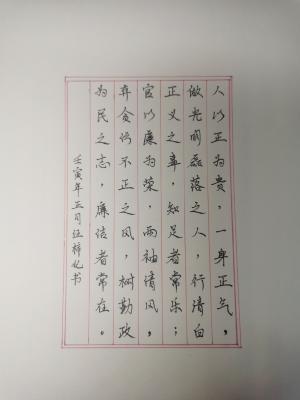 人以正为贵，一身正气，
做光明磊落之人，行清白
正义之事，知足者常乐；
官以廉为荣，两袖清风，
弃贪污不正之风，树勤政
为民之志，廉洁者常在。
壬寅年正月伍梓书